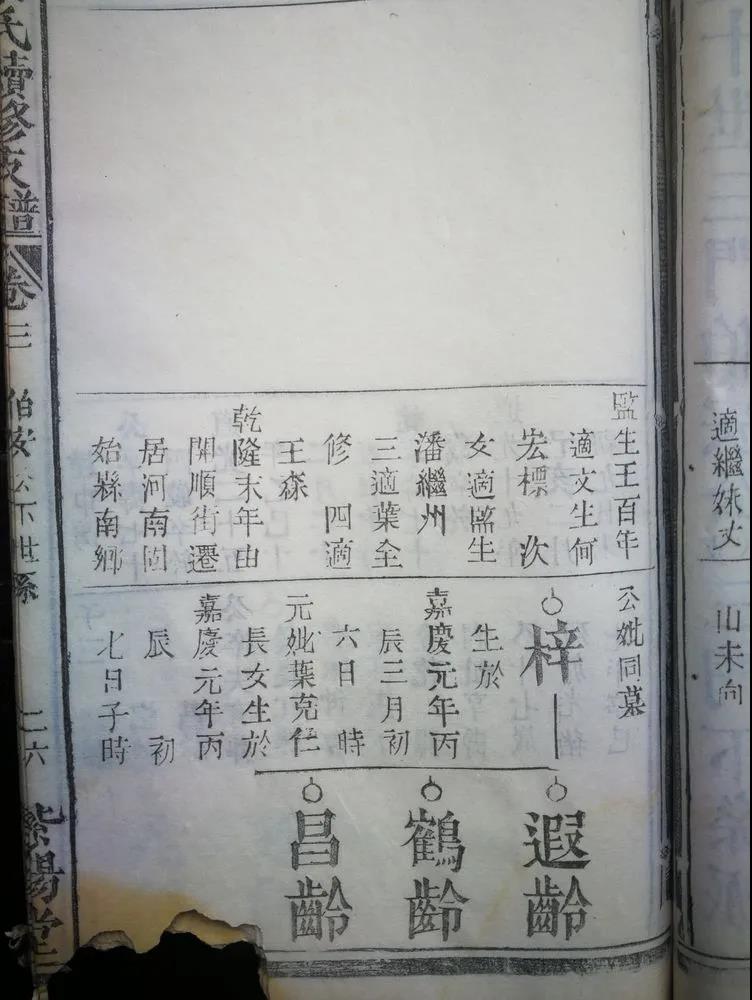 適繼妹丈
山未向
監生王百年
適文生何
宏標　次
女適監生
潘繼州
三適葉全
修　四適
王森
乾隆末年由
開順街遷
居河南固
始縣南鄉
公妣同墓
梓
生於
嘉慶元年丙
辰三月初
六日　時
元妣葉克仁
長女生於
嘉慶元年丙
辰　初
七日子時
遐齡
鶴齡
昌齡
氏續修支譜
卷三
伯安公下世系
二六
紫陽堂